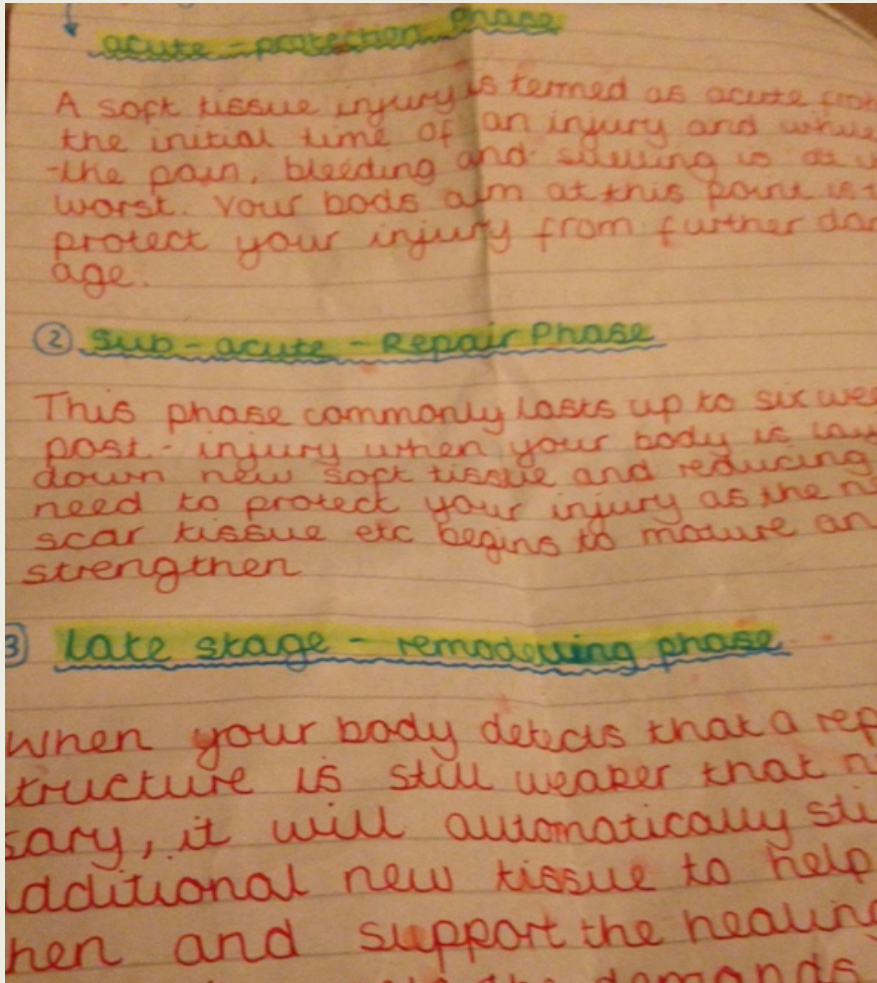 acute - protection phase
A soft tissue injury is termed as acute from
the initial time of an injury and while
the pain, bleeding and swelling is at
worst. Your bods aim at this point is
protect your injury from further dam
age.
② Sub - acute - Repair Phase
This phase commonly lasts up to six wee
post - injury when your body is lay
down new soft tissue and reducing
need to protect your injury as the n
scar tissue etc begins to mature an
strengthen
3 Late stage - remodelling phase
When your body detects that a rep
tructure is still weaker that n
sary, it will automatically sti
dditional new tissue to help
hen and support the healing
the demands